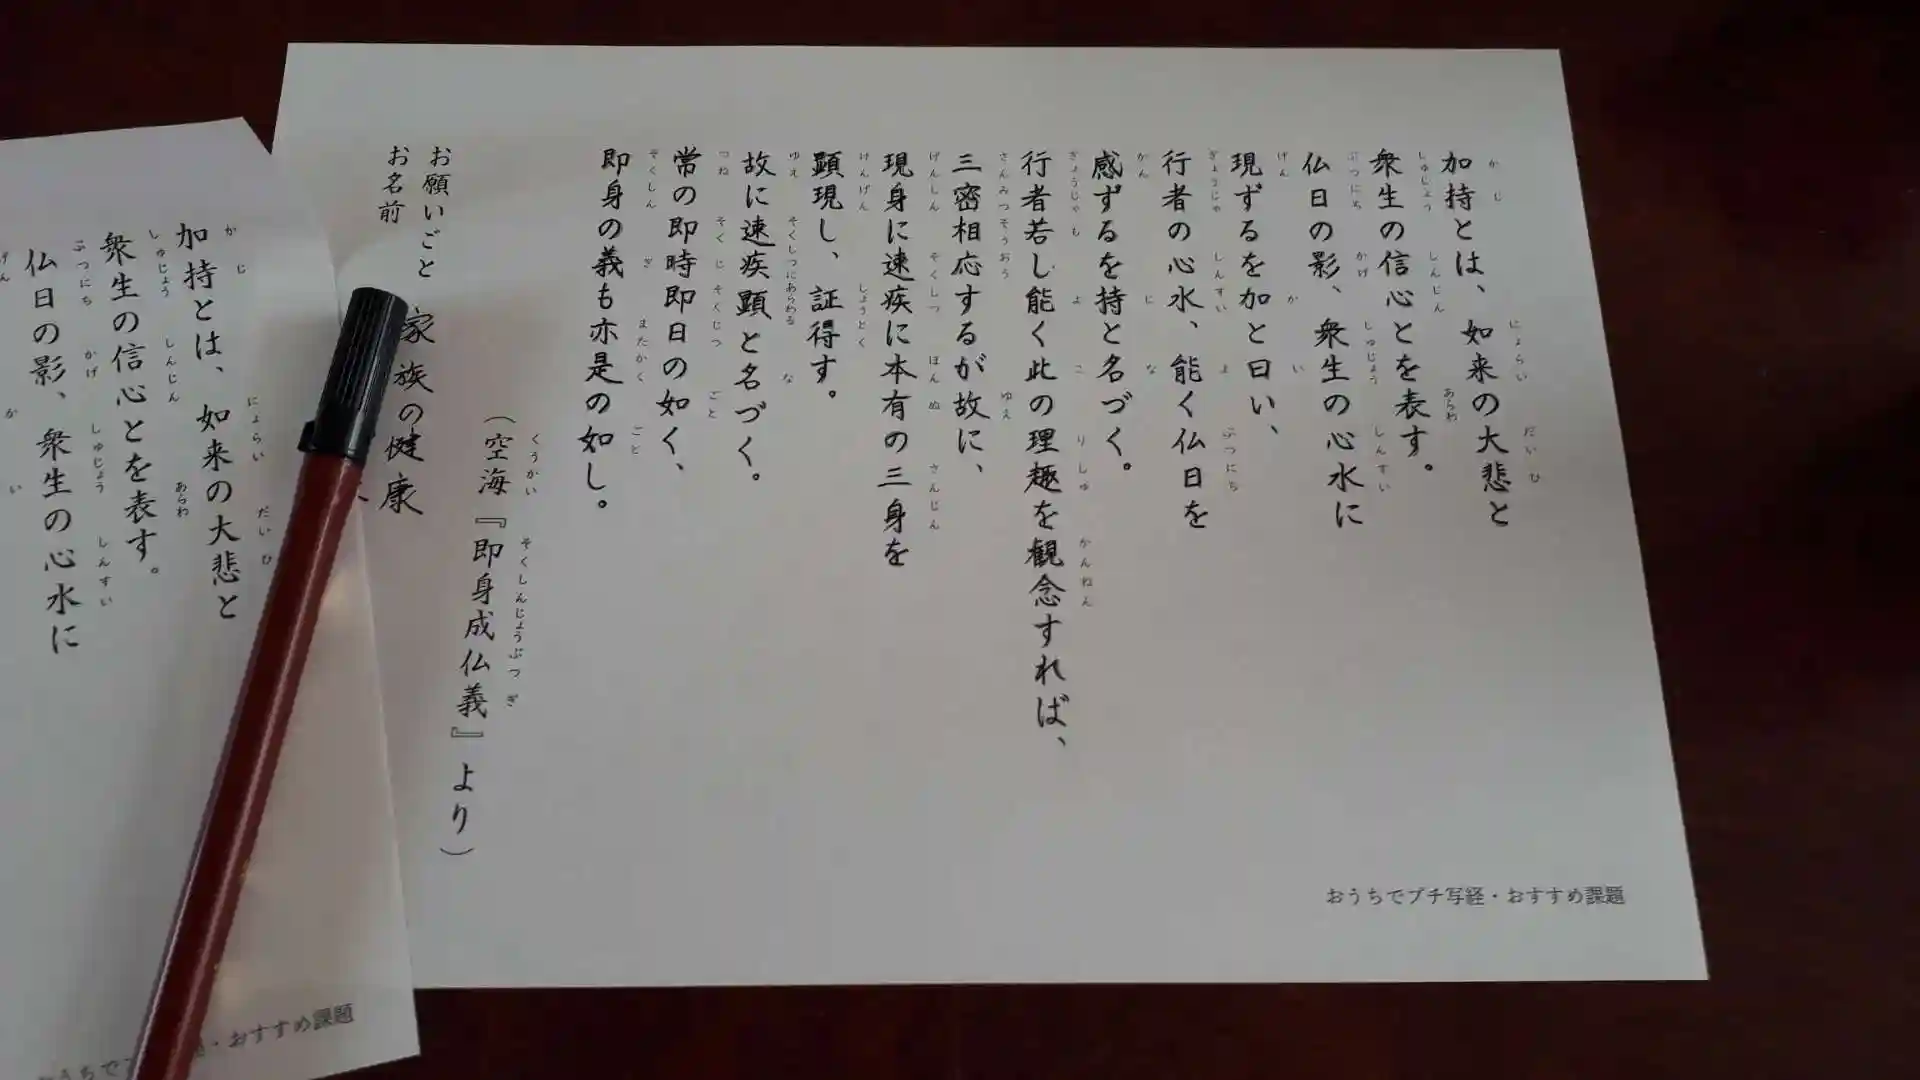 加持とは、如来の大悲と
衆生の信心とを表す。
仏日の影、衆生の心水に
現ずるを加と曰い、
行者の心水、能く仏日を
感ずるを持と名づく。
行者若し能く此の理趣を観念すれば、
三密相応するが故に、
現身に速疾に本有の三身を
顕現し、証得す。
故に速疾顕と名づく。
常の即時即日の如く、
即身の義も亦是の如し。
(空海『即身成仏義』より)
お願いごと 家族の健康
お名前
おうちでプチ写経・おすすめ課題
加持とは、如来の大悲と
衆生の信心とを表す。
仏日の影、衆生の心水に
おうちでプ
・おすすめ課題